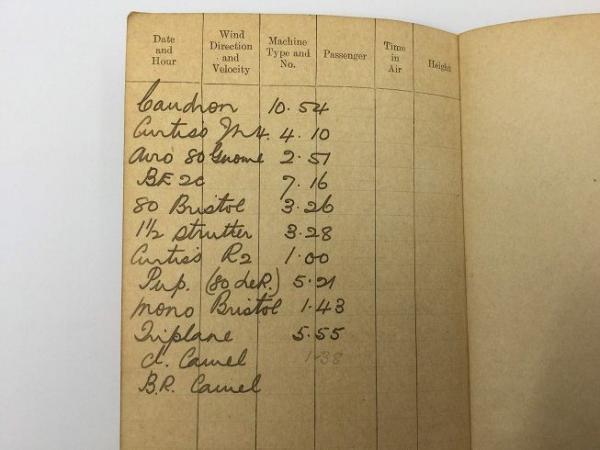 Date and Hour Wind Direction and Velocity Machine Type and No. Passenger Time in Air Height
Caudron 10.54
Curtiss JN4. 4.10
Avro 80 Gnome 2.51
BE 2c 7.16
80 Bristol 3.26
1½ Strutter 3.28
Curtiss R2 1.00
Pup. (80 le R.) 5.21
Mono Bristol 1.43
Triplane 5.55
Cl. Camel 1.38
B.R. Camel